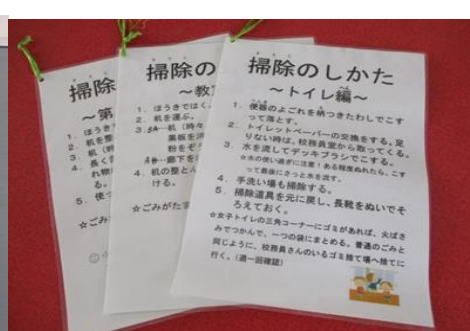 掃除
～第
1. ほうきで
2. 机を整
3. 机(
4. 長く
れ物
る。
5. 使っ
☆ごみ
掃除の
～教
1. ほうきではく。
2. 机を運ぶ。
3. 机(時々
黒板を
粉をそ
廊下を
4. 机の整とん
ける。
☆ごみがたま
掃除のしかた
～トイレ編～
1. 便器のよごれを柄つきたわしでこす
って落とす。
2. トイレットペーパーの交換をする。足
りない時は、校務員室から取ってくる。
3. 水を流してデッキブラシでこする。
☆水の使い過ぎに注意!ある程度ぬれたら、こす
って最後にさっと水を流す。
4. 手洗い場も掃除する。
5. 掃除道具を元に戻し、長靴をぬいでそ
ろえておく。
☆女子トイレの三角コーナーにゴミがあれば、火ばさ
みでつかんで、一つの袋にまとめる。普通のごみと
同じように、校務員さんのいるゴミ捨て場へ捨てに
行く。(週一回確認)